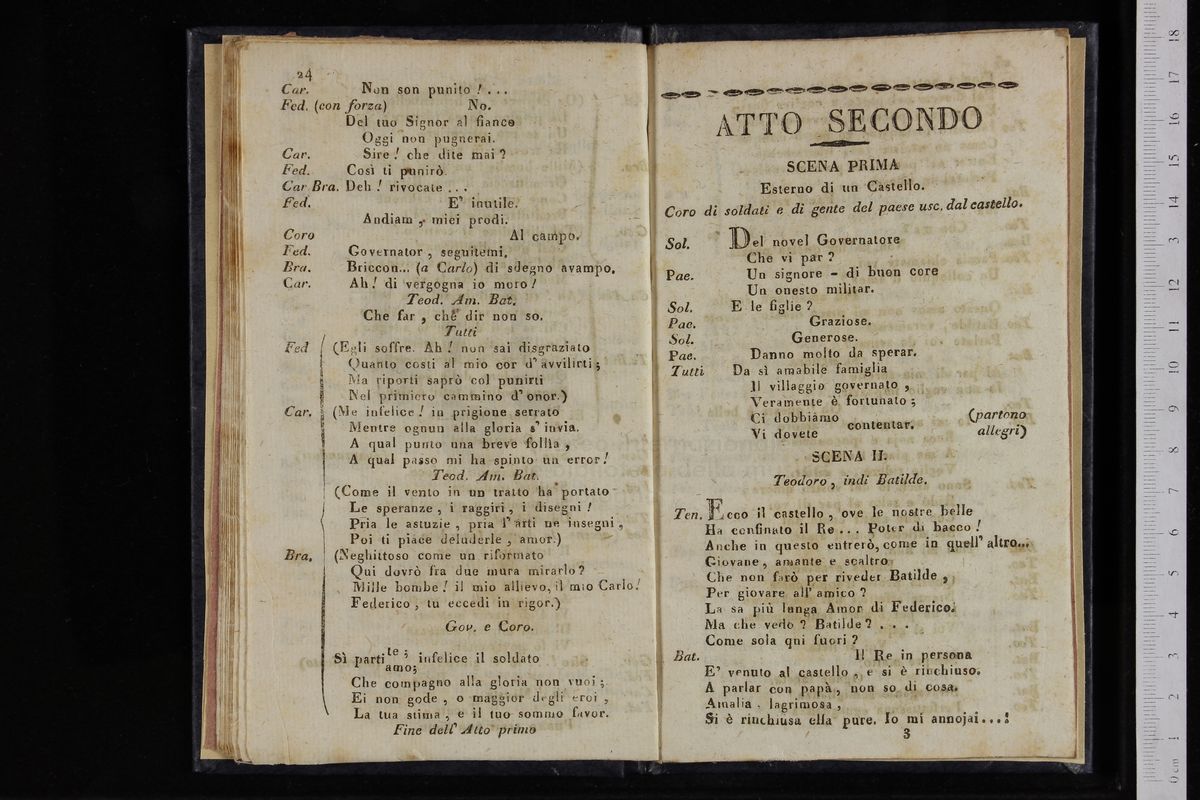 24
Car. Non son punito! ...
Fed. (con forza) No.
Del tuo Signor al fianco
Oggi non pugnerai.
Car. Sire! che dite mai?
Fed. Così ti punirò.
Car Bra. Deh! rivocate ...
Fed. E' inutile.
Andiam, miei prodi.
Coro Al campo.
Fed. Governator, seguitemi,
Bra. Briccon... (a Carlo) di sdegno avampo.
Car. Ah! di vergogna io moro!
Teod. Am. Bat.
Che far, che dir non so.
Tutti
Fed (Egli soffre. Ah! non sai disgraziato
Quanto costi al mio cor d'avvilirti;
Ma riporti saprò col punirti
Nel primiero cammino d'onor.)
Car. (Me infelice! in prigione serrato
Mentre ognun alla gloria s'invia.
A qual punto una breve follia,
A qual passo mi ha spinto un error!
Teod. Am. Bat.
(Come il vento in un tratto ha portato
Le speranze, i raggiri, i disegni!
Pria le astuzie, pria l'arti ne insegni,
Poi ti piace deluderle, amor.)
Bra. (Neghittoso come un riformato
Qui dovrò fra due mura mirarlo?
Mille bombe! il mio allievo, il mio Carlo!
Federico, tu eccedi in rigor.)
Gov. e Coro.
Sì partite; infelice il soldato
amo;
Che compagno alla gloria non vuoi;
Ei non gode, o maggior degli eroi,
La tua stima, e il tuo sommo favor.
Fine dell'Atto primo
ATTO SECONDO
SCENA PRIMA
Esterno di un Castello.
Coro di soldati e di gente del paese usc. dal castello.
Sol. Del novel Governatore
Che vi par?
Pae. Un signore - di buon core
Un onesto militar.
Sol. E le figlie?
Pae. Graziose.
Sol. Generose.
Pae. Danno molto da sperar.
Tutti Da sì amabile famiglia
Il villaggio governato,
Veramente è fortunato;
Ci dobbiamo contentar. (partono
Vi dovete allegri)
SCENA II.
Teodoro, indi Batilde.
Ten. Ecco il castello, ove le nostre belle
Ha confinato il Re ... Poter di bacco!
Anche in questo entrerò, come in quell'altro...
Giovane, amante e scaltro
Che non farò per riveder Batilde,
Per giovare all'amico?
La sa più lunga Amor di Federico.
Ma che vedo? Batilde? ...
Come sola qni fuori?
Bat. Il Re in persona
E' venuto al castello, e si è rinchiuso.
A parlar con papà, non so di cosa.
Amalia, lagrimosa,
Si è rinchiusa ella pure. Io mi annojai...!
3
0 cm 1 2 3 4 5 6 7 8 9 10 11 12 13 14 15 16 17 18